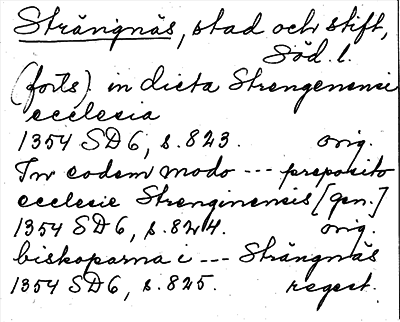 Strängnäs, stad och stift,
Söd. l.
(forts). in dicta Strengenensi
ecclesia
1354 SD6, s. 823. orig.
In eodem modo --- preposito
ecclesie Strenginensis [gen.]
1354 SD6, s. 824. orig.
biskoparna i --- Strängnäs
1354 SD6, s. 825. regest.